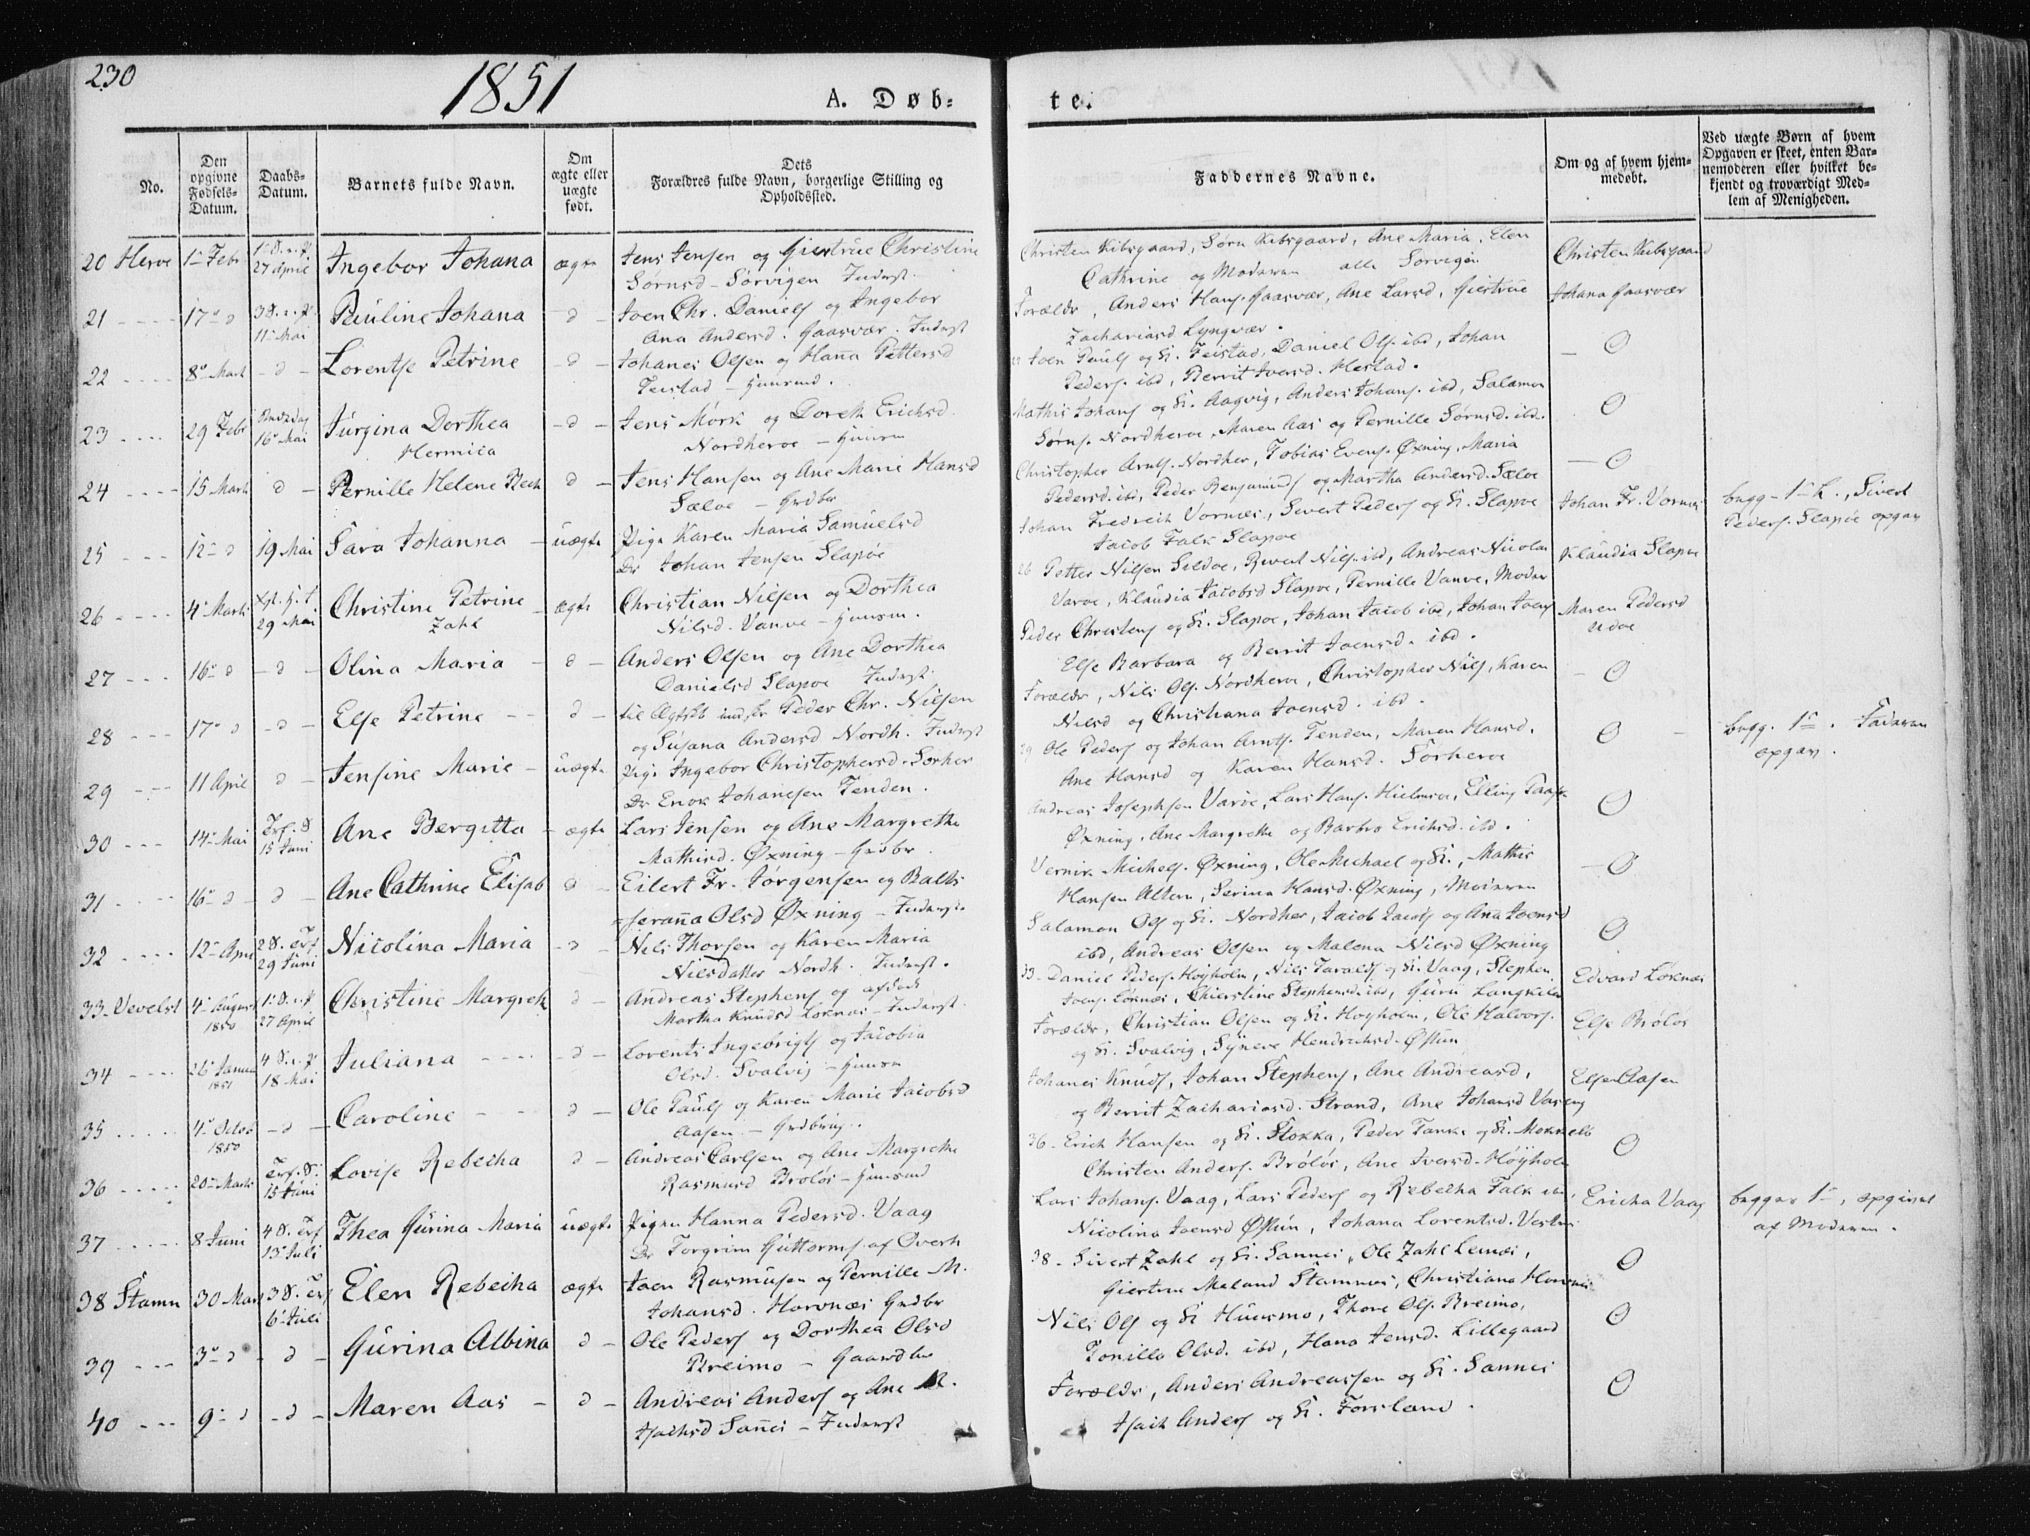 230
1851
A. Døb-
te.
No.
Den opgivne Fødsels-Datum.
Daabs-Datum.
Barnets fulde Navn.
Om ægte eller uægte født.
Dets Forældres fulde Navn, borgerlige Stilling og Opholdssted.
Faddernes Navne.
Om og af hvem hjemmedøbt.
Ved uægte Børn af hvem Opgaven er skeet, enten Barnemoderen eller hvilket bekjendt og troværdigt Medlem af Menigheden.
20 Herøe 1- Febr 27 April Ingebor Johana ægte Jens Jensen og Giertrue Christine
Sørnsd - Sørvigen Inderst
Christen Kibsgaard, Sørn Kibsgaard, Ane Maria, Elen
Cathrine og Moderen alle Sørvigen
Christen Kibsgaard
21 17- d 11- Mai Pauline Johana d Joen Chr. Daniels og Ingebor
Ana Andersd. Gaasvær. Inderst
Forældr, Anders Hans. Gaasvær, Ane Larsd, Giertrue
Zachariasd Lyngvær.
Johana Gaasvær
22 8- Marts d Lorentse Petrine d Johanes Olsen og Hana Pettersd
Teistad - Huusmd.
Joen Pauls og K. Feistad, Daniel Ols. ibd, Johan
Peders. ibd, Berrit Iversd. Hestad.
0
23 29 Febr 16- Mai Jürgina Dorthea
Hermica d Jens Mørk og Doreth Erichsd.
Nordherøe - Huusm
Mathis Johans og K. Aagvig, Anders Johans. ibd, Salamon
Sørns. Nordherøe, Maren Aas og Pernille Sørnsd. ibd.
0
24 15 Marts d Pernille Helene Bech d Jens Hansen og Ane Marie Hansd
Sæløe - Grdbr
Christopher Arnts. Nordher, Tobias Evens. Øxning, Maria
Pedersd. ibd, Peder Benjamins og Martha Andersd. Sæløe
0
25 12- d 19 Mai Sara Johanna uægte Pige Karen Maria Samuelsd
Dr Johan Jensen Slapøe
Johan Fredreich Vornæs, Sivert Peders og K. Slapøe
Jacob Falk Slapøe
Johan Fr. Vornæs
begg - 1- L., Sivert
Peders. Slapøe opgav
26 4- Marts 29 Mai Christine Petrine
Zahl ægte Christian Nilsen og Dorthea
Nilsd. Vanve - Huusm.
26 Petter Nilsen Seldøe, Sivert Nils. ibd, Andreas Nicolai
Varøe, Klaudia Jacobsd Slapøe, Pernille Vanve, Moder
Klaudia Slapøe
27 16- d d Olina Maria d Anders Olsen og Ane Dorthea
Danielsd Slapøe Inderst
Peder Christens og K. Slapøe, Johan Jacob ibd, Johan Joens
Else Barbara og Berrit Joensd. ibd.
Maren Pedersd
28 17- d d Else Petrine d Peder Chr. Nilsen
og Susana Andersd Nordh. Inderst
Forældr, Nils Ols. Nordherøe, Christopher Nils, Karen
Nilsd og Christiana Joensd. ibd.
0
29 11 April d Jensine Marie uægte Pige Ingebor Christophersd. Sørher
Dr Enok Johanesen Tenden.
29 Ole Peders og Johan Arnts. Tenden, Maren Hansd.
Ane Hansd og Karen Hansd. Sørherøe
0
begg. 1-. Faderen
opgav.
30 14- Mai 15 Juni Ane Bergitta ægte Lars Jensen og Ane Margrethe
Mathisd. Øxning - Grdbr.
Andreas Josephsen Varøe, Lars Hans. Hielmsøe,
Øxning, Ane Margrethe og Barbro Erichsd. ibd.
0
31 16- d d Ane Cathrine Elisab d Eilert Fr. Jørgensen og Balts
Olsd Øxning - Inderst
Vernik Michels. Øxning, Ole Michael og K., Mathis
Hansen Altern, Serina Hansd. Øxning, Moderen
0
32 12- April 29 Juni Nicolina Maria d Nils Thorsen og Karen Maria
Nilsdatter Nordh. Inderst.
Salamon Ols og K. Nordher, Jacob Jacobs og Ana Joensd
ibd, Andreas Olsen og Malena Nilsd Øxning
0
33 Vevelst 4- August
1850 27 April Christine Margreth d Andreas Stephens og afdøde
Martha Knudsd Løknæs - Inderst
33- Daniel Peders. Høyholm, Nils Taralds og K. Vaag, Stephen
Joens. Løknæs, Chierstine Stephensd. ibd, Guru Langkile
Edvard Løknæs
34 26 Januar
1851 18 Mai Juliana d Lorents Ingebrigts og Jacobia
Olsd. Svalvig - Huusm
Forældr, Christian Olsen og K. Høyholm, Ole Halvors.
og K. Svalvig, Synere Hendrichsd.
Else Brøløs
35 4- Octob
1850 d Caroline d Ole Pauls og Karen Marie Jacobsd
Aasen - Grdbrug.
Johanes Knuds, Johan Stephens, Ane Andreasd,
og Berrit Zachariasd. Strand, Ane Johansd
Else Aasen
36 20- Marts 15 Juni Lovise Rebecha d Andreas Carlsen og Ane Margrethe
Rasmusd Brøløs - Huusmd
36- Erich Hansen og K. Stokka, Peder Tanke og K.
Christen Anders. Brøløs, Ane Iversd. Høyholm
0
37 8 Juni 13- Juli Thea Gürina Maria uægte Pigen Hanna Pedersd. Vaag
Dr Torgrim Guttorms. af Overh
Lars Johans. Vaag, Lars Peders og Rebecha Falk ibd,
Nicolina Joensd, Johana Lorentsd.
Ericha Vaag
beggas 1-, opgivet
af Moderen.
38 Stamn 30 Marts 6- Juli Elen Rebecha ægte Joen Rasmusen og Pernille M.
Johansd. Horvnæs Grdbr
38- Sivert Zahl og K. Sannes, Ole Zahl Lenæs,
Meland Stamnæs, Christiana
0
39 3- d d Gürina Albina d Ole Peders og Dorthea Olsd
Breimo - Gaardbr
Nils Ols og K. Huusmo, Thore Ols. Breimo,
Tonilla Olsd. ibd, Hana Jensd. Lillegaard
0
40 9- d d Maren Aas d Andreas Anders og Ane M.
Isachsd Sannes - Inderst
Forældr, Anders Andreassen og K. Sannes
Isach Anders og K. Forsland.
0